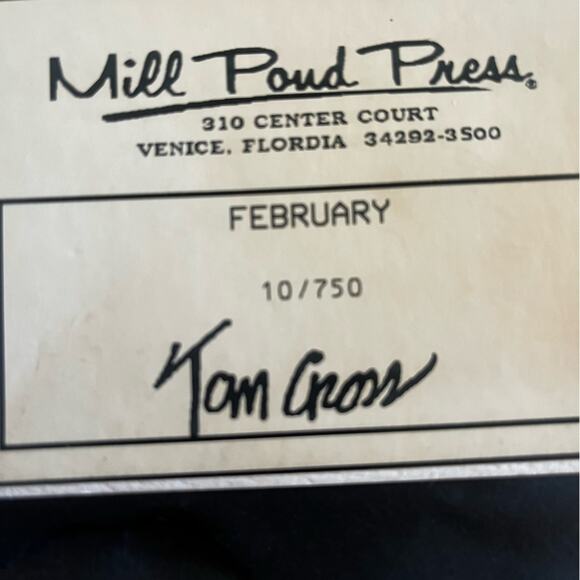 Mill Pond Press®
310 CENTER COURT
VENICE, FLORDIA 34292-3500
FEBRUARY
10/750
Tom Cross